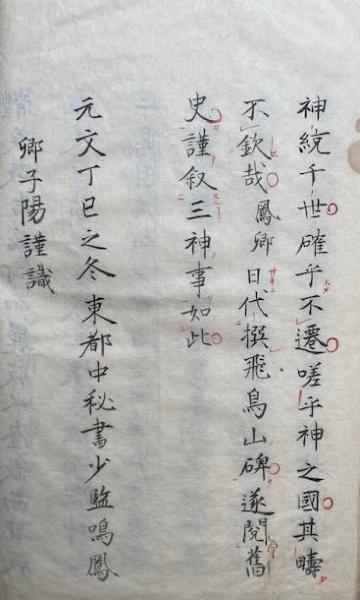 神統千世確乎不遷嗟乎神之國其疇
不欽哉鳳卿日代撰飛鳥山碑遂閱舊
史謹叙三神事如此
元文丁巳之冬東都中秘書少監鳴鳳
卿子陽謹識